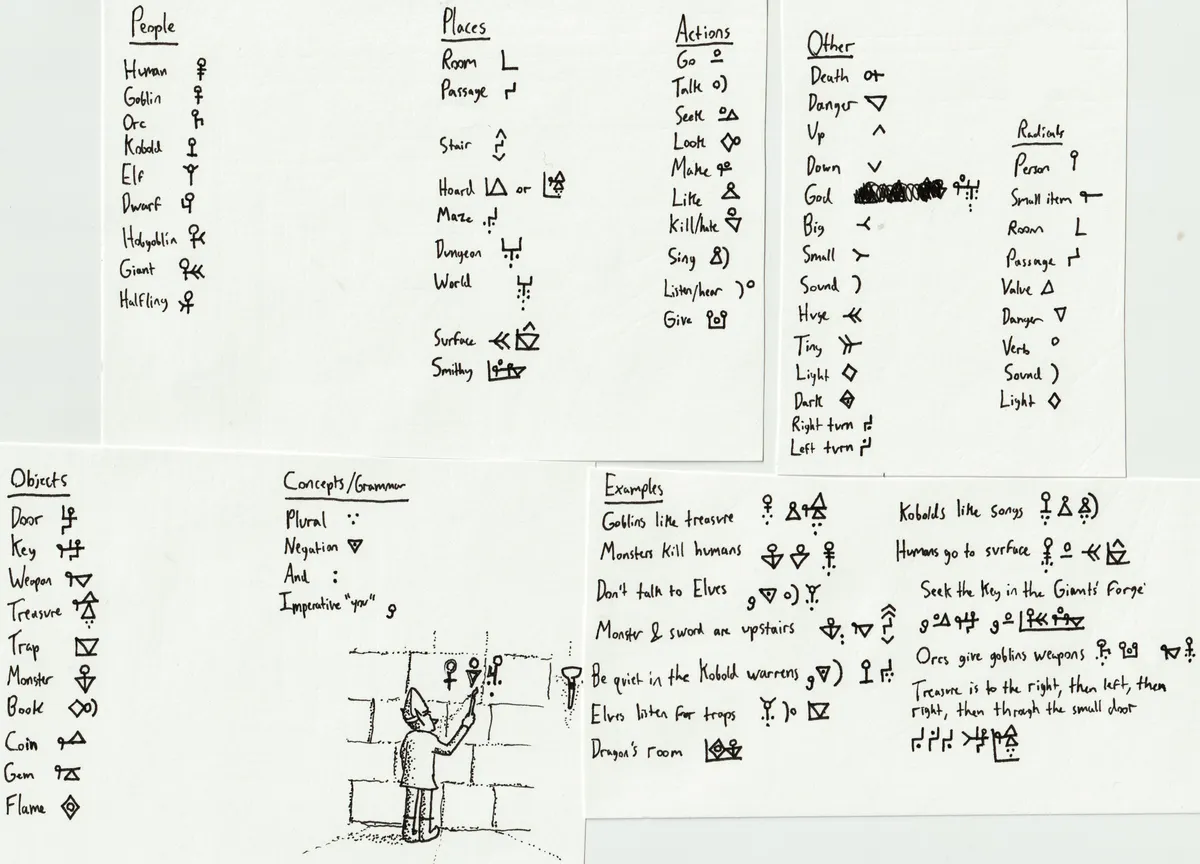 People
Human
Goblin
Orc
Kobold
Elf
Dwarf
Hobgoblin
Giant
Halfling
Places
Room
Passage
Stair
Hoard or
Maze
Dungeon
World
Surface
Smithy
Actions
Go
Talk
Seek
Look
Make
Like
Kill/hate
Sing
Listen/hear
Give
Other
Death
Danger
Up
Down
God
Big
Small
Sound
Huge
Tiny
Light
Dark
Right turn
Left turn
Radicals
Person
Small item
Room
Passage
Value
Danger
Verb
Sound
Light
Objects
Door
Key
Weapon
Treasure
Trap
Monster
Book
Coin
Gem
Flame
Concepts/Grammar
Plural
Negation
And
Imperative "you"
Examples
Goblins like treasure
Monsters kill humans
Don't talk to Elves
Monster & sword are upstairs
Be quiet in the Kobold warrens
Elves listen for traps
Dragon's room
Kobolds like songs
Humans go to surface
Seek the Key in the Giants' Forge
Orcs give goblins weapons
Treasure is to the right, then left, then
right, then through the small door